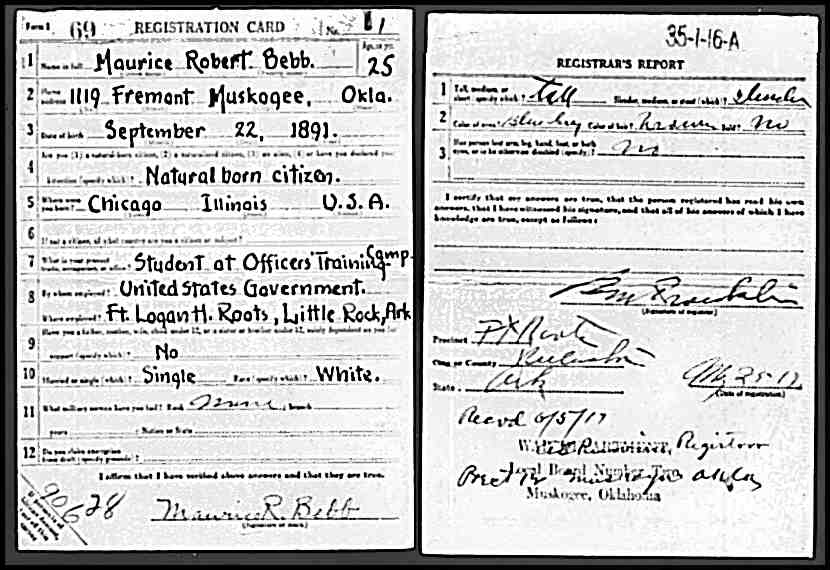 Form 1 69 REGISTRATION CARD No. 11
1 Name in full Maurice Robert Bebb. Age, in yrs. 25
2 Home address 1119 Fremont Muskogee, Okla.
3 Date of birth September 22, 1891.
4 Are you (1) a natural-born citizen, (2) a naturalized citizen, (3) an alien, (4) or have you declared your
intention (specify which)? Natural born citizen.
5 Where were you born? Chicago Illinois U.S.A.
6 If not a citizen, of what country are you a citizen or subject?
7 What is your present trade, occupation, or office? Student at Officers' Training Camp.
8 By whom employed? United States Government.
Where employed? Ft. Logan H. Roots, Little Rock, Ark
9 Have you a father, mother, wife, child under 12, or a sister or brother under 12, solely dependent on you for
support (specify which)? No
10 Married or single (which)? Single Race (specify which)? White.
11 What military service have you had? Rank None; branch
years; Nation or State
12 Do you claim exemption from draft (specify grounds)?
I affirm that I have verified above answers and that they are true.
90628
Maurice R. Bebb
35-1-16-A
REGISTRAR'S REPORT
1 Tall, medium, or short (specify which)? Tall Slender, medium, or stout (which)? Slender
2 Color of eyes? Color of hair? brown Bald? No
3 Has person lost arm, leg, hand, foot, or both eyes, or is he otherwise disabled (specify)? No
I certify that my answers are true, that the person registered has read his own
answers, that I have witnessed his signature, and that all of his answers of which I have
knowledge are true, except as follows:
(Signature of registrar)
Precinct
City or County Pulaski
State Ark
(Date of registration)
Recvd 6/5/17
Registrar
Local Board Number Two
Muskogee, Oklahoma